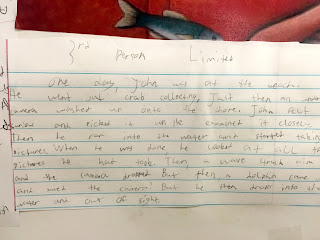 3rd Person Limited
One day, John was at the beach.
He went out crab collecting. Just then an
camera washed up onto the shore. John felt
and picked it up. He examined it closely.
Then he ran into the water and started taking
pictures. When he was done he looked at all the
pictures he had took. Then a wave struck him
and the camera dropped. But then a dolphin came
and used the camera! But he then drove into
water and out of sight.